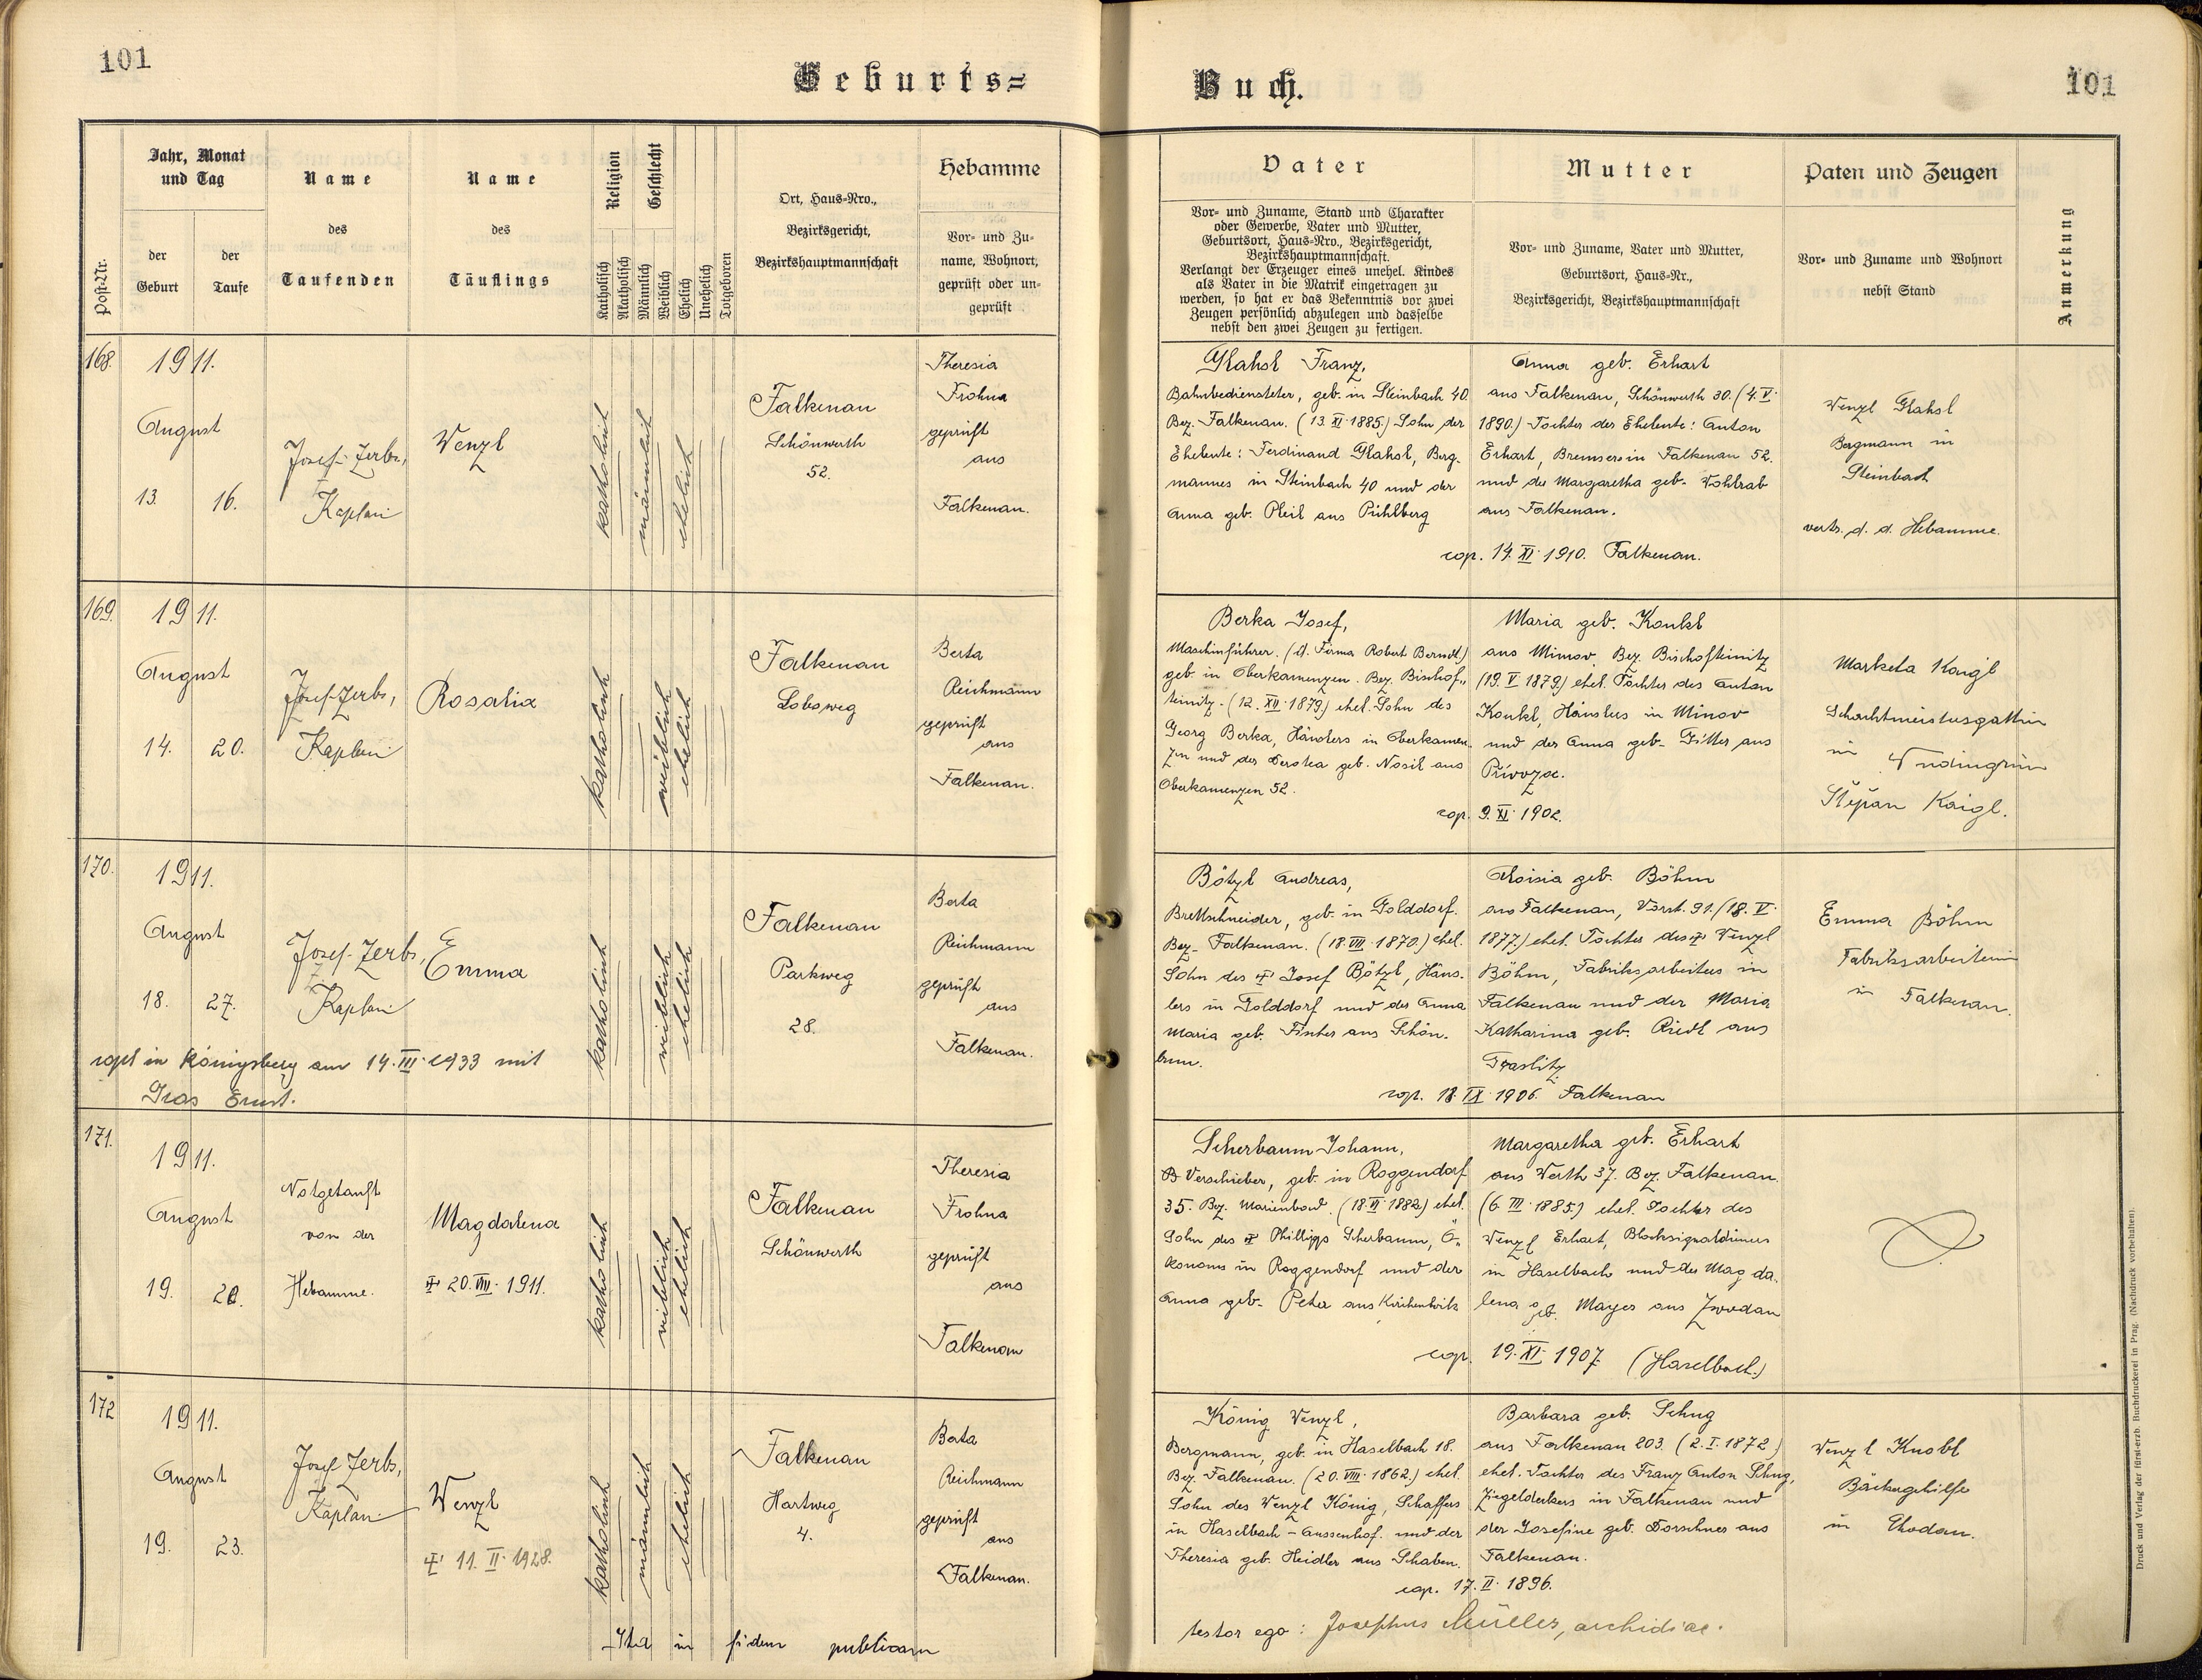 101
Geburts=
Buch.
101
Post-Nr.
Jahr, Monat
und Tag
der
Geburt
der
Taufe
Name
des
Taufenden
Name
des
Täuflings
Religion
Katholisch
Akatholisch
Geschlecht
Männlich
Weiblich
Ehelich
Unehelich
Totgeboren
Ort, Haus-Nro.,
Bezirksgericht,
Bezirkshauptmannschaft
Hebamme
Vor- und Zu-
name, Wohnort,
geprüft oder un-
geprüft
Vater
Vor- und Zuname, Stand und Charakter
oder Gewerbe, Vater und Mutter,
Geburtsort, Haus-Nro., Bezirksgericht,
Bezirkshauptmannschaft.
Verlangt der Erzeuger eines unehel. Kindes
als Vater in die Matrik eingetragen zu
werden, so hat er das Bekenntnis vor zwei
Zeugen persönlich abzulegen und dasselbe
nebst den zwei Zeugen zu fertigen.
Mutter
Vor- und Zuname, Vater und Mutter,
Geburtsort, Haus-Nr.,
Bezirksgericht, Bezirkshauptmannschaft
Paten und Zeugen
Vor- und Zuname und Wohnort
nebst Stand
Anmerkung
168.
1911.
August
13.
16.
Josef Zerbs,
Kaplan
Wenzl
katholisch
männlich
ehelich
Falkenau
Schönwerth
52.
Theresia
Frohna
geprüft
aus
Falkenau.
Glahsl Franz,
Bahnbediensteter, geb. in Steinbach 40.
Bez. Falkenau. (13. XI. 1885.) Sohn der
Eheleute: Ferdinand Glahsl, Berg-
mannes in Steinbach 40 und der
Anna geb. Pleil aus Pühlberg
Anna geb. Erhart
aus Falkenau, Schönwerth 30. (4. V.
1890.) Tochter der Eheleute: Anton
Erhart, Bremsers in Falkenau 52.
und der Margaretha geb. Wohlrab
aus Falkenau.
cop. 14. XI. 1910. Falkenau.
Wenzl Glahsl
Bergmann in
Steinbach
vertr. d. d. Hebamme.
169.
1911.
August
14.
20.
Josef Zerbs,
Kaplan
Rosalia
katholisch
weiblich
ehelich
Falkenau
Lobsweg
Berta
Reichmann
geprüft
aus
Falkenau.
Berka Josef,
Maschinführer. (d. Firma Robert Berndt)
geb. in Oberkamenzen. Bez. Bischof„
teinitz. (12. XII. 1879.) ehel. Sohn des
Georg Berka, Häuslers in Oberkamen„
zen und der Dorotea geb. Nosil aus
Oberkamenzen 52.
Maria geb. Konkl
aus Mimov, Bez. Bischofteinitz
(19. V. 1879.) ehel. Tochter des Anton
Konkl, Häuslers in Minov
und der Anna geb. aus
cop. 9. XI. 1902.
Marketa Kaigl
Schachtmeistersgattin
in
Štěpan Kaigl.
170.
1911.
August
18.
27.
Josef Zerbs,
Kaplan
Emma
katholisch
weiblich
ehelich
Falkenau
Parkweg
28.
Berta
Reichmann
geprüft
aus
Falkenau.
Bötzl Andreas,
Brettschneider, geb. in Golddorf.
Bez. Falkenau. (18. VIII. 1870.) ehel.
Sohn des ✝ Josef Bötzl, Häus-
lers in Golddorf und der Anna
Maria geb. Fischer aus Schön-
brun.
Aloisia geb. Böhm
aus Falkenau, Vorst. 31. (18. V.
1877.) ehel. Tochter des ✝ Wenzl
Böhm, Fabriksarbeiters in
Falkenau und der Maria
Katharina geb. Riedl aus
Graslitz.
cop. 18. IX. 1906. Falkenau
Emma Böhm
Fabriksarbeiterin
in Falkenau.
copl in Königsberg am 14. III. 1933 mit
Gras Ernst.
171.
1911.
August
19.
20.
Notgetauft
von der
Hebamme.
Magdalena
✝ 20. VIII. 1911.
katholisch
weiblich
ehelich
Falkenau
Schönwerth
Theresia
Frohna
geprüft
aus
Falkenau
Scherbaum Johann,
B. Verschieber, geb. in Roggendorf
35. Bez. Marienbad. (18. VI. 1882) ehel.
Sohn des ✝ Phillipps Scherbaum, Ö„
konoms in Roggendorf und der
Anna geb. Peter aus
Margaretha geb. Erhart
aus Werth 37. Bez. Falkenau.
(6. III. 1885.) ehel. Tochter des
Wenzl Erhart, Blocksignaldieners
in Haselbach und der Magda„
lena geb. Mayer aus Zwodau
cop. 19. XI. 1907. (Haselbach.)
172
1911.
August
19.
23.
Josef Zerbs,
Kaplan
Wenzl
✝ 11. II. 1928.
katholisch
männlich
ehelich
Falkenau
Hartweg
4.
Berta
Reichmann
geprüft
aus
Falkenau.
König Wenzl,
Bergmann, geb. in Haselbach 18.
Bez. Falkenau. (20. VIII. 1862.) ehel.
Sohn des Wenzl König, Schaffers
in Haselbach – Aussenhof. und der
Theresia geb. Heidler aus Schaben.
Barbara geb. Schug
aus Falkenau 203. (2. I. 1872.)
ehel. Tochter des Franz Anton Schug,
Ziegeldeckers in Falkenau und
der Josefine geb. Dorschner aus
Falkenau.
cop. 17. II. 1896.
Wenzl Knobl
Bäckergehilfe
in Chodau.
Ita in fidem publicam
testor ego: Josephus Müller, archidiac.
Druck und Verlag der fürst-erzb. Buchdruckerei in Prag. (Nachdruck vorbehalten).